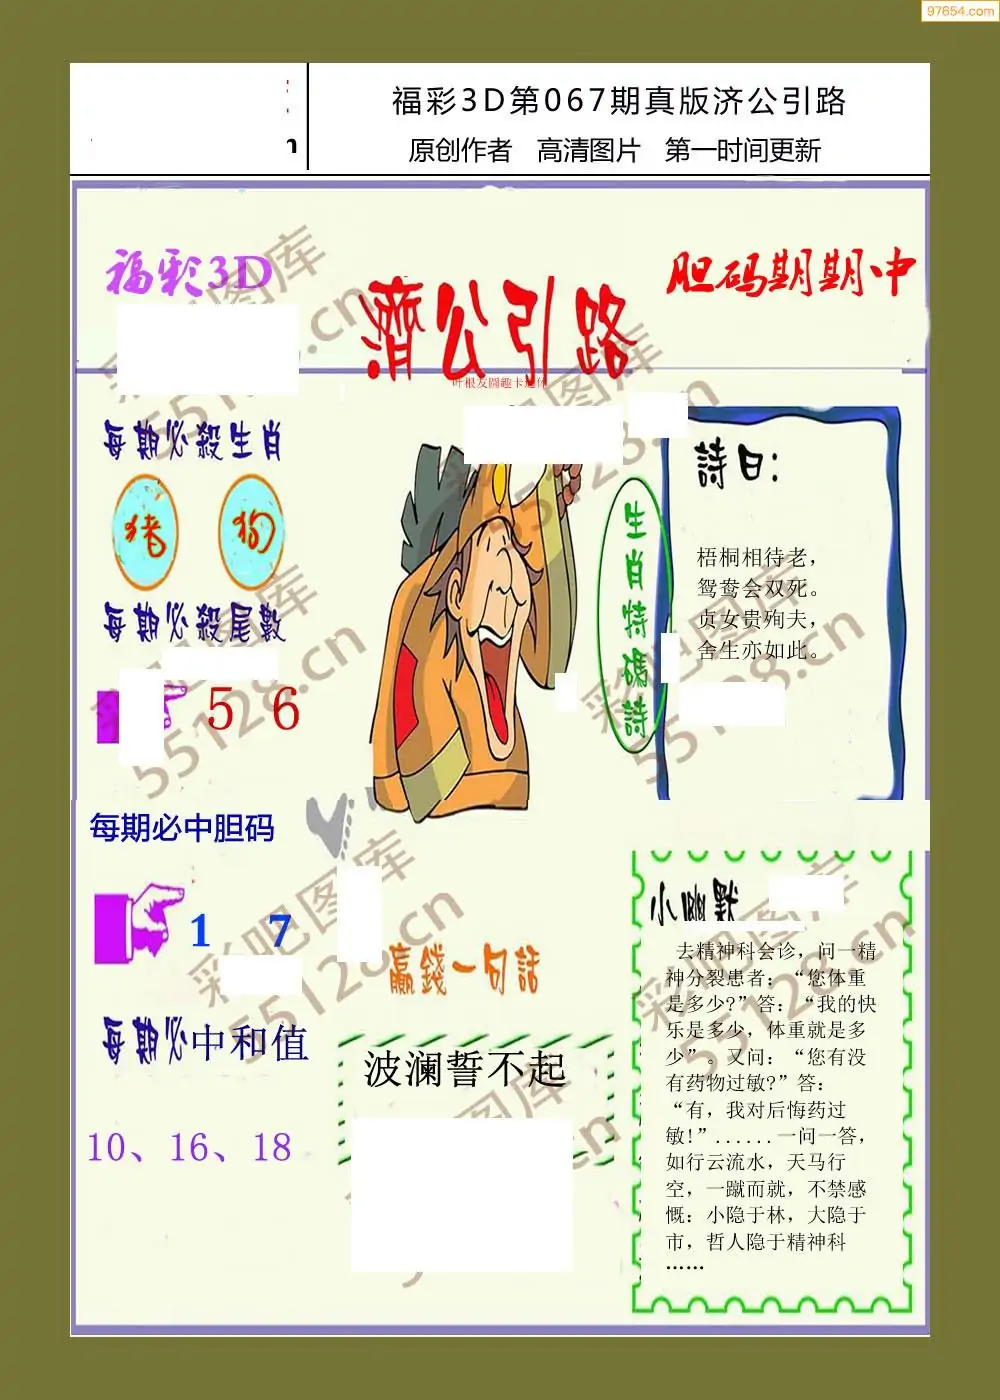 97654.com
福彩3D第067期真版济公引路
原创作者 高清图片 第一时间更新
福彩3D
濟公引路
胆码期期中
每期必殺生肖
猪 狗
每期必殺尾數
5 6
生肖特碼詩
詩曰：
梧桐相待老，
鸳鸯会双死。
贞女贵殉夫，
舍生亦如此。
每期必中胆码
1 7
每期必中和值
10、16、18
贏錢一句話
波澜誓不起
小幽默
去精神科会诊，问一精
神分裂患者：“您体重
是多少?”答：“我的快
乐是多少，体重就是多
少”。又问：“您有没
有药物过敏?”答：
“有，我对后悔药过
敏!”......一问一答，
如行云流水，天马行
空，一蹴而就，不禁感
慨：小隐于林，大隐于
市，哲人隐于精神科
……
彩吧图库
55128.cn